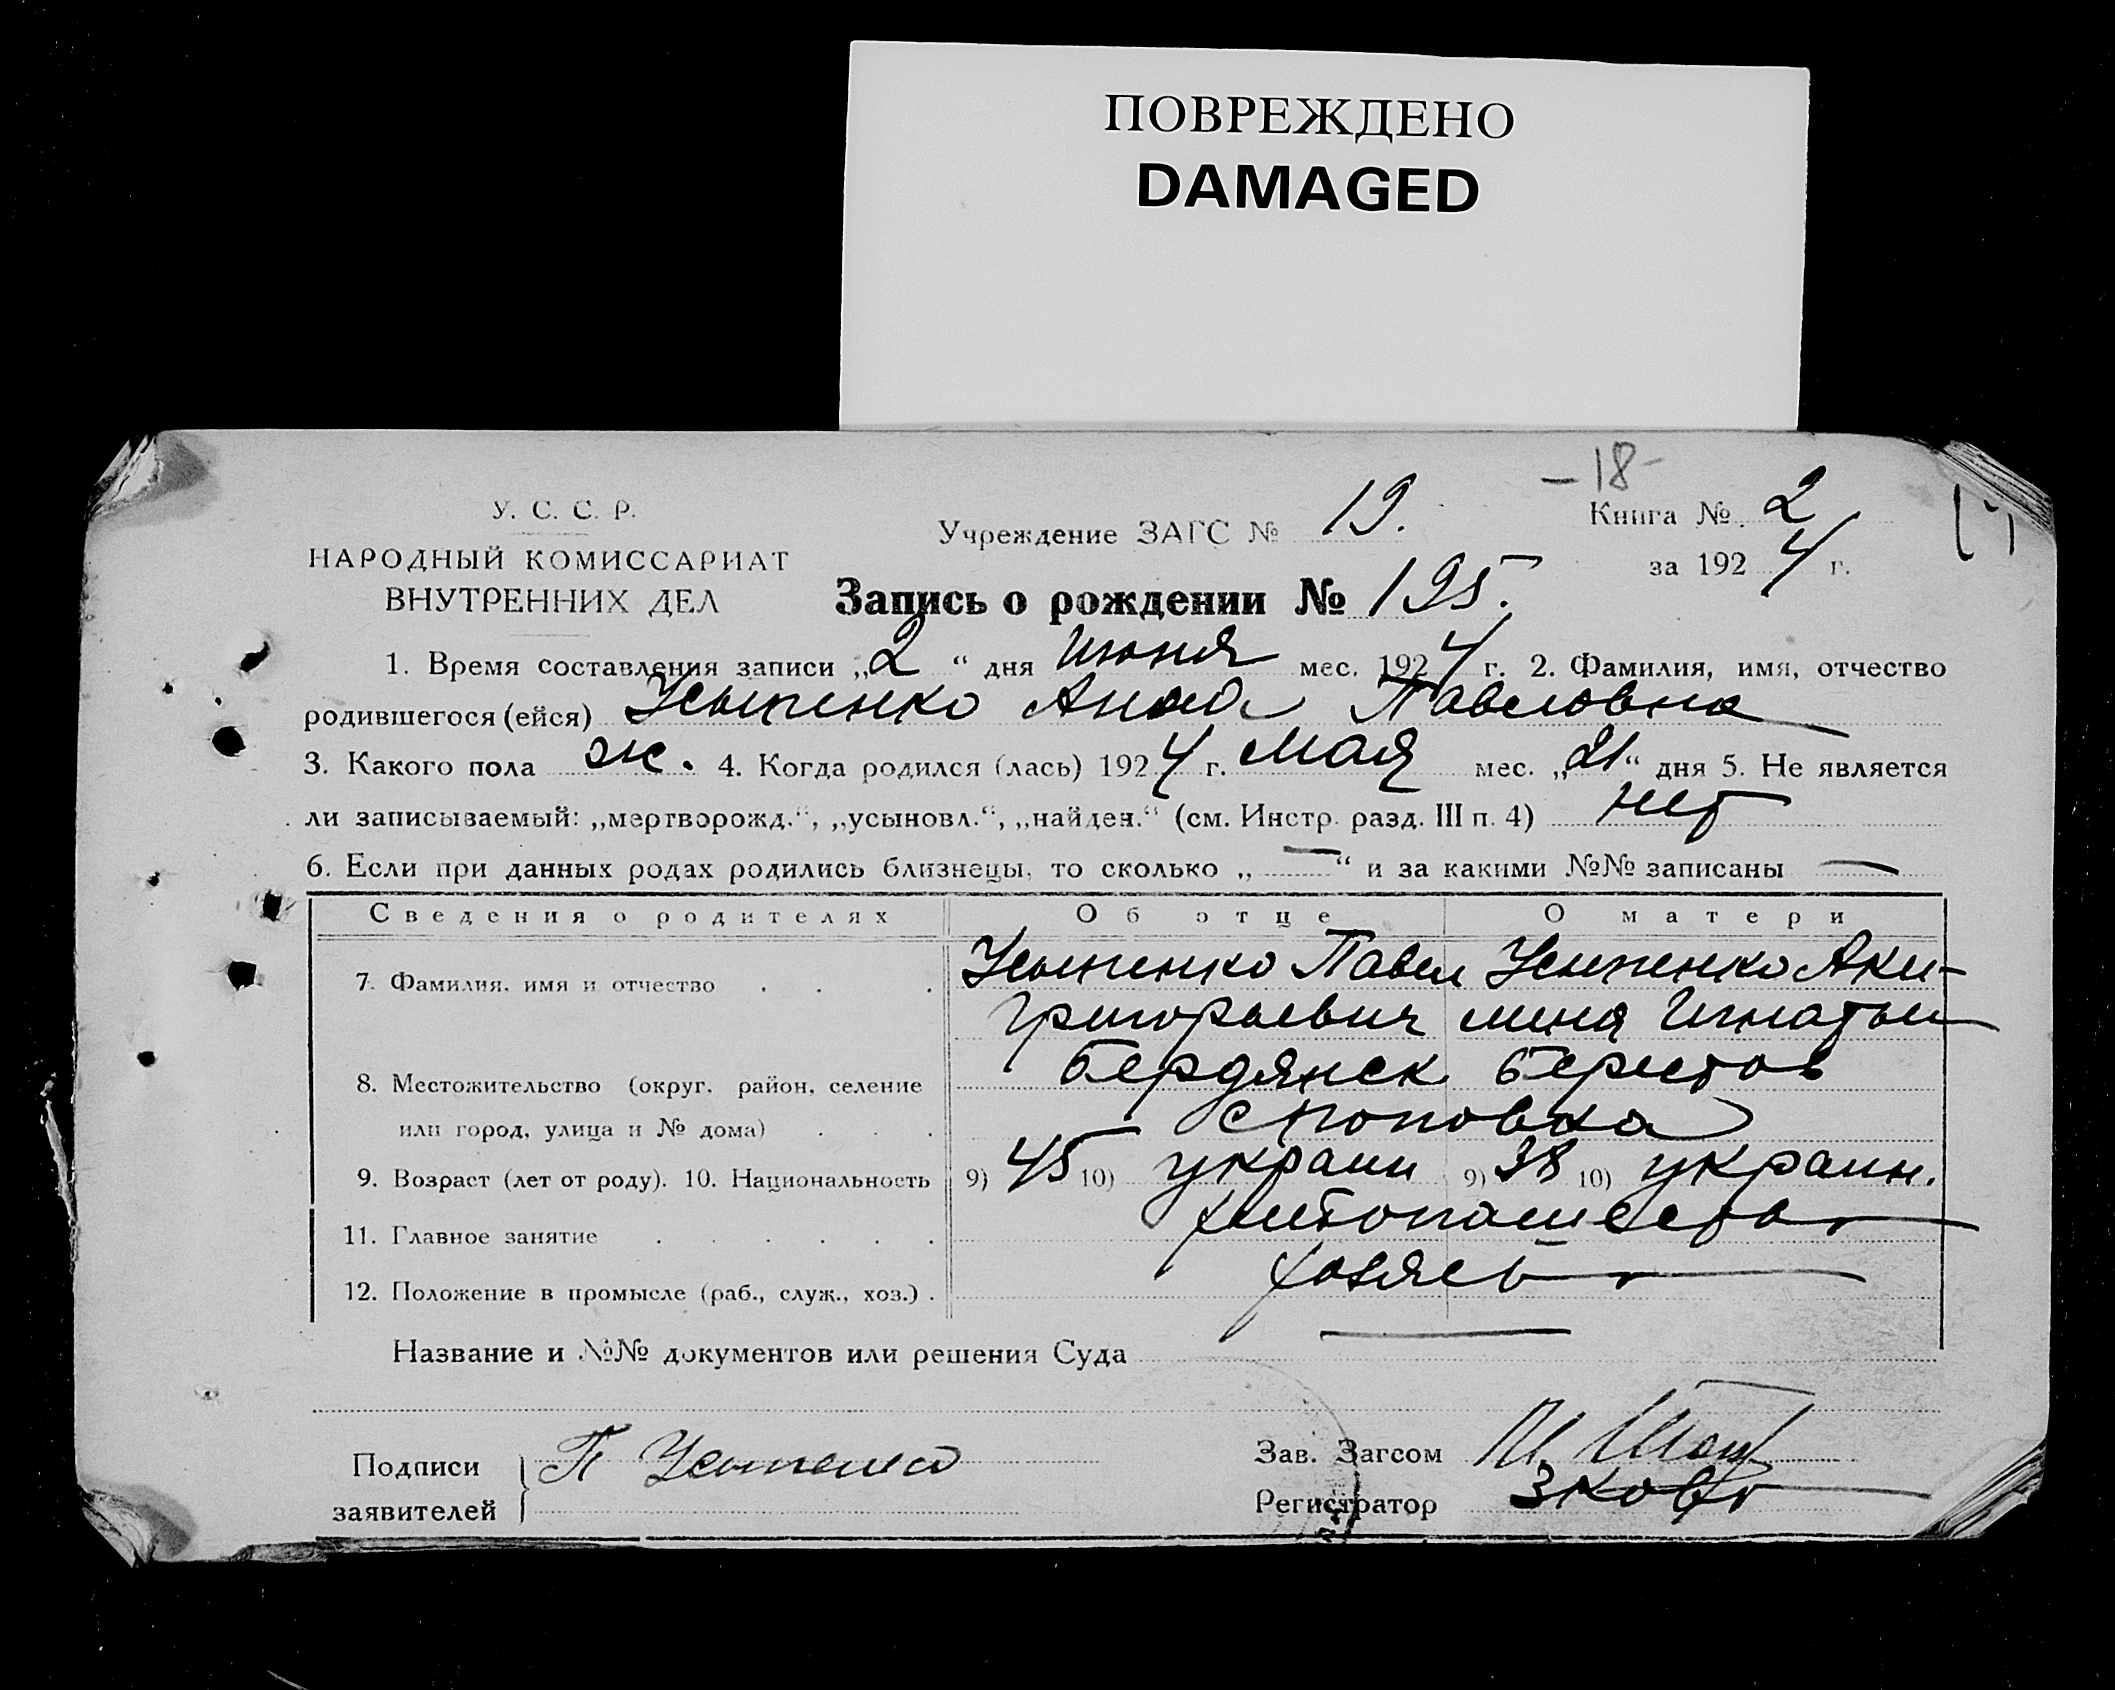 ПОВРЕЖДЕНО
DAMAGED
-18-
У. С. С. Р.
НАРОДНЫЙ КОМИССАРИАТ
ВНУТРЕННИХ ДЕЛ
Учреждение ЗАГС № 19.
Книга № 2
за 1924 г.
Запись о рождении № 195.
1. Время составления записи „2“ дня июня мес. 1924 г. 2. Фамилия, имя, отчество
родившегося (ейся) Усыпенко Анна Павловна
3. Какого пола ж. 4. Когда родился (лась) 1924 г. мая мес. „21“ дня 5. Не является
ли записываемый: „мертворожд.“, „усыновл.“, „найден.“ (см. Инстр. разд. III п. 4) нет
6. Если при данных родах родились близнецы, то сколько „—“ и за какими №№ записаны —
Сведения о родителях Об отце О матери
7. Фамилия, имя и отчество . . . Усыпенко Павел Усыпенко Аки-
Григорьевич лина Игнатьи
8. Местожительство (округ, район, селение Бердянск Берестов
или город, улица и № дома) . . . с Поповка
9. Возраст (лет от роду). 10. Национальность 9) 45 10) украин 9) 38 10) украин.
11. Главное занятие . . . . . . хлебопашество
12. Положение в промысле (раб., служ., хоз.) . хозяева
Название и №№ документов или решения Суда —
Подписи
заявителей
П Усыпенко
Зав. Загсом
Регистратор